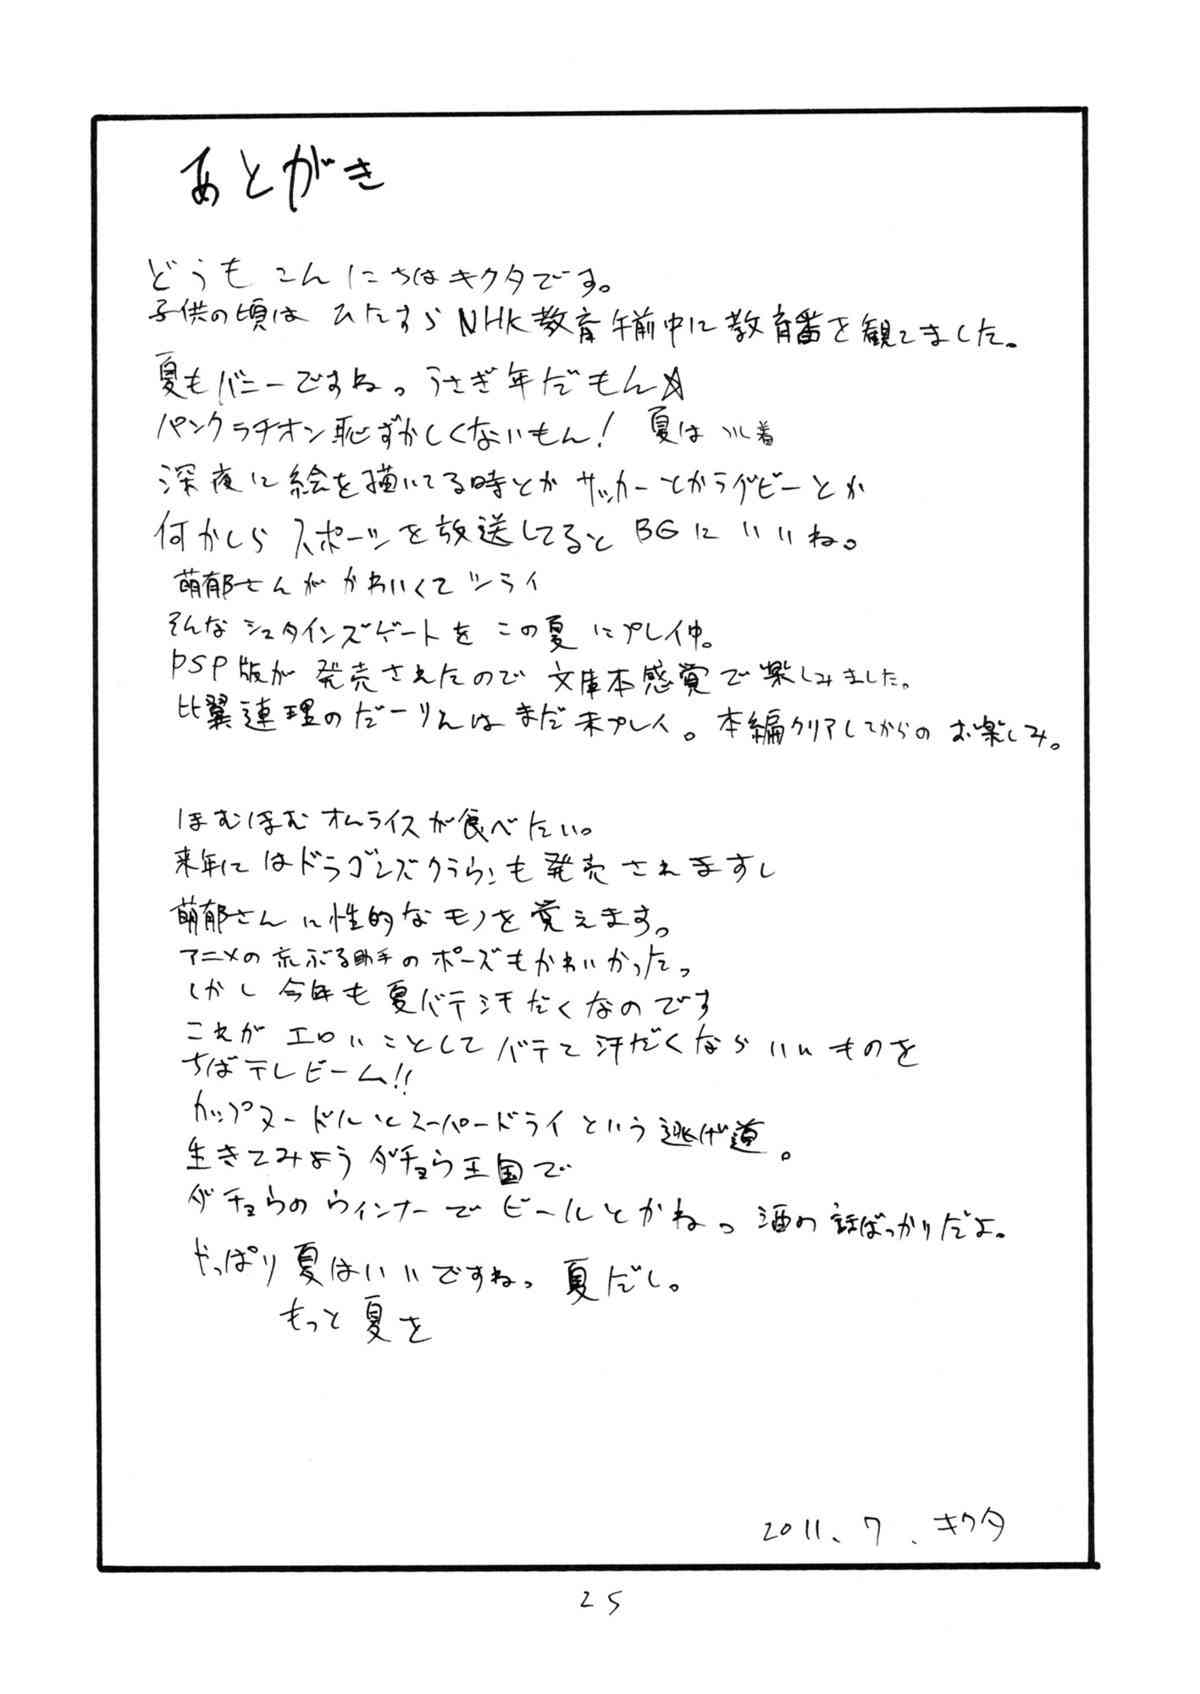 あとがき
どうもこんにちはキクタです。
子供の頃は ひたすらNHK教育午前中に教育番を観てました。
夏もバニーですねっうさぎ年だもん☆
パンクラチオン恥ずかしくないもん! 夏は 着
深夜に絵を描いてる時とか サッカーとかラグビーとか
何かしら スポーツを放送してると BGにいいね。
萌郁さんがかわいくてツライ
そんなシュタインズゲートを この夏にプレイ中。
PSP版が 発売されたので 文庫本感覚で楽しみました。
比翼連理のだーりんはまだ未プレイ。本編クリアしてからの お楽しみ。
ほむほむオムライスが食べたい。
来年にはドラゴンズクラウンも発売されますし
萌郁さんに性的なモノを覚えます。
アニメの荒ぶる助手のポーズもかわいかったっ
しかし今年も夏バテ汗だくなのです
これがエロいことしてバテて汗だくならいいものを
ちばテレビーム!!
カップヌードルとスーパードライという逃げ道。
生きてみようダチョウ王国で
ダチョウのウィンナーでビールとかねっ 酒の話ばっかりだよ。
やっぱり夏はいいですねっ 夏だし。
もっと夏を
2011.7.キクタ
25